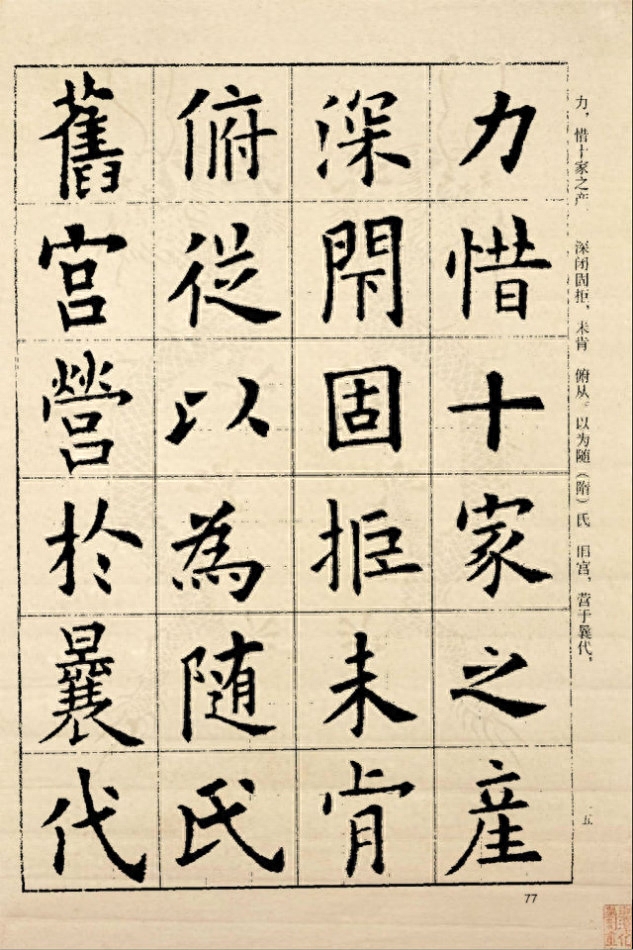 力惜十家之產
深閇固拒未肯
俯從以為随氏
舊宮營於曩代
力，惜十家之产　深闭固拒，未肯　俯从。以为随（隋）氏　旧宫，营于曩代，
五
77